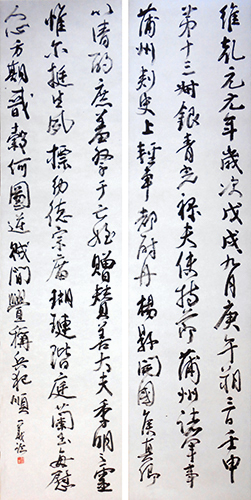 維乾元元年歲次戊戌九月庚午朔三日壬申
第十三叔銀青光祿夫使持節蒲州諸軍事
蒲州刺史上輕車都尉丹楊縣開國侯真卿
以清酌庶羞祭于亡姪贈贊善大夫季明之靈
惟爾挺生夙標幼德宗廟瑚璉階庭蘭玉每慰
人心方期戩穀何圖逆賊間釁稱兵犯順